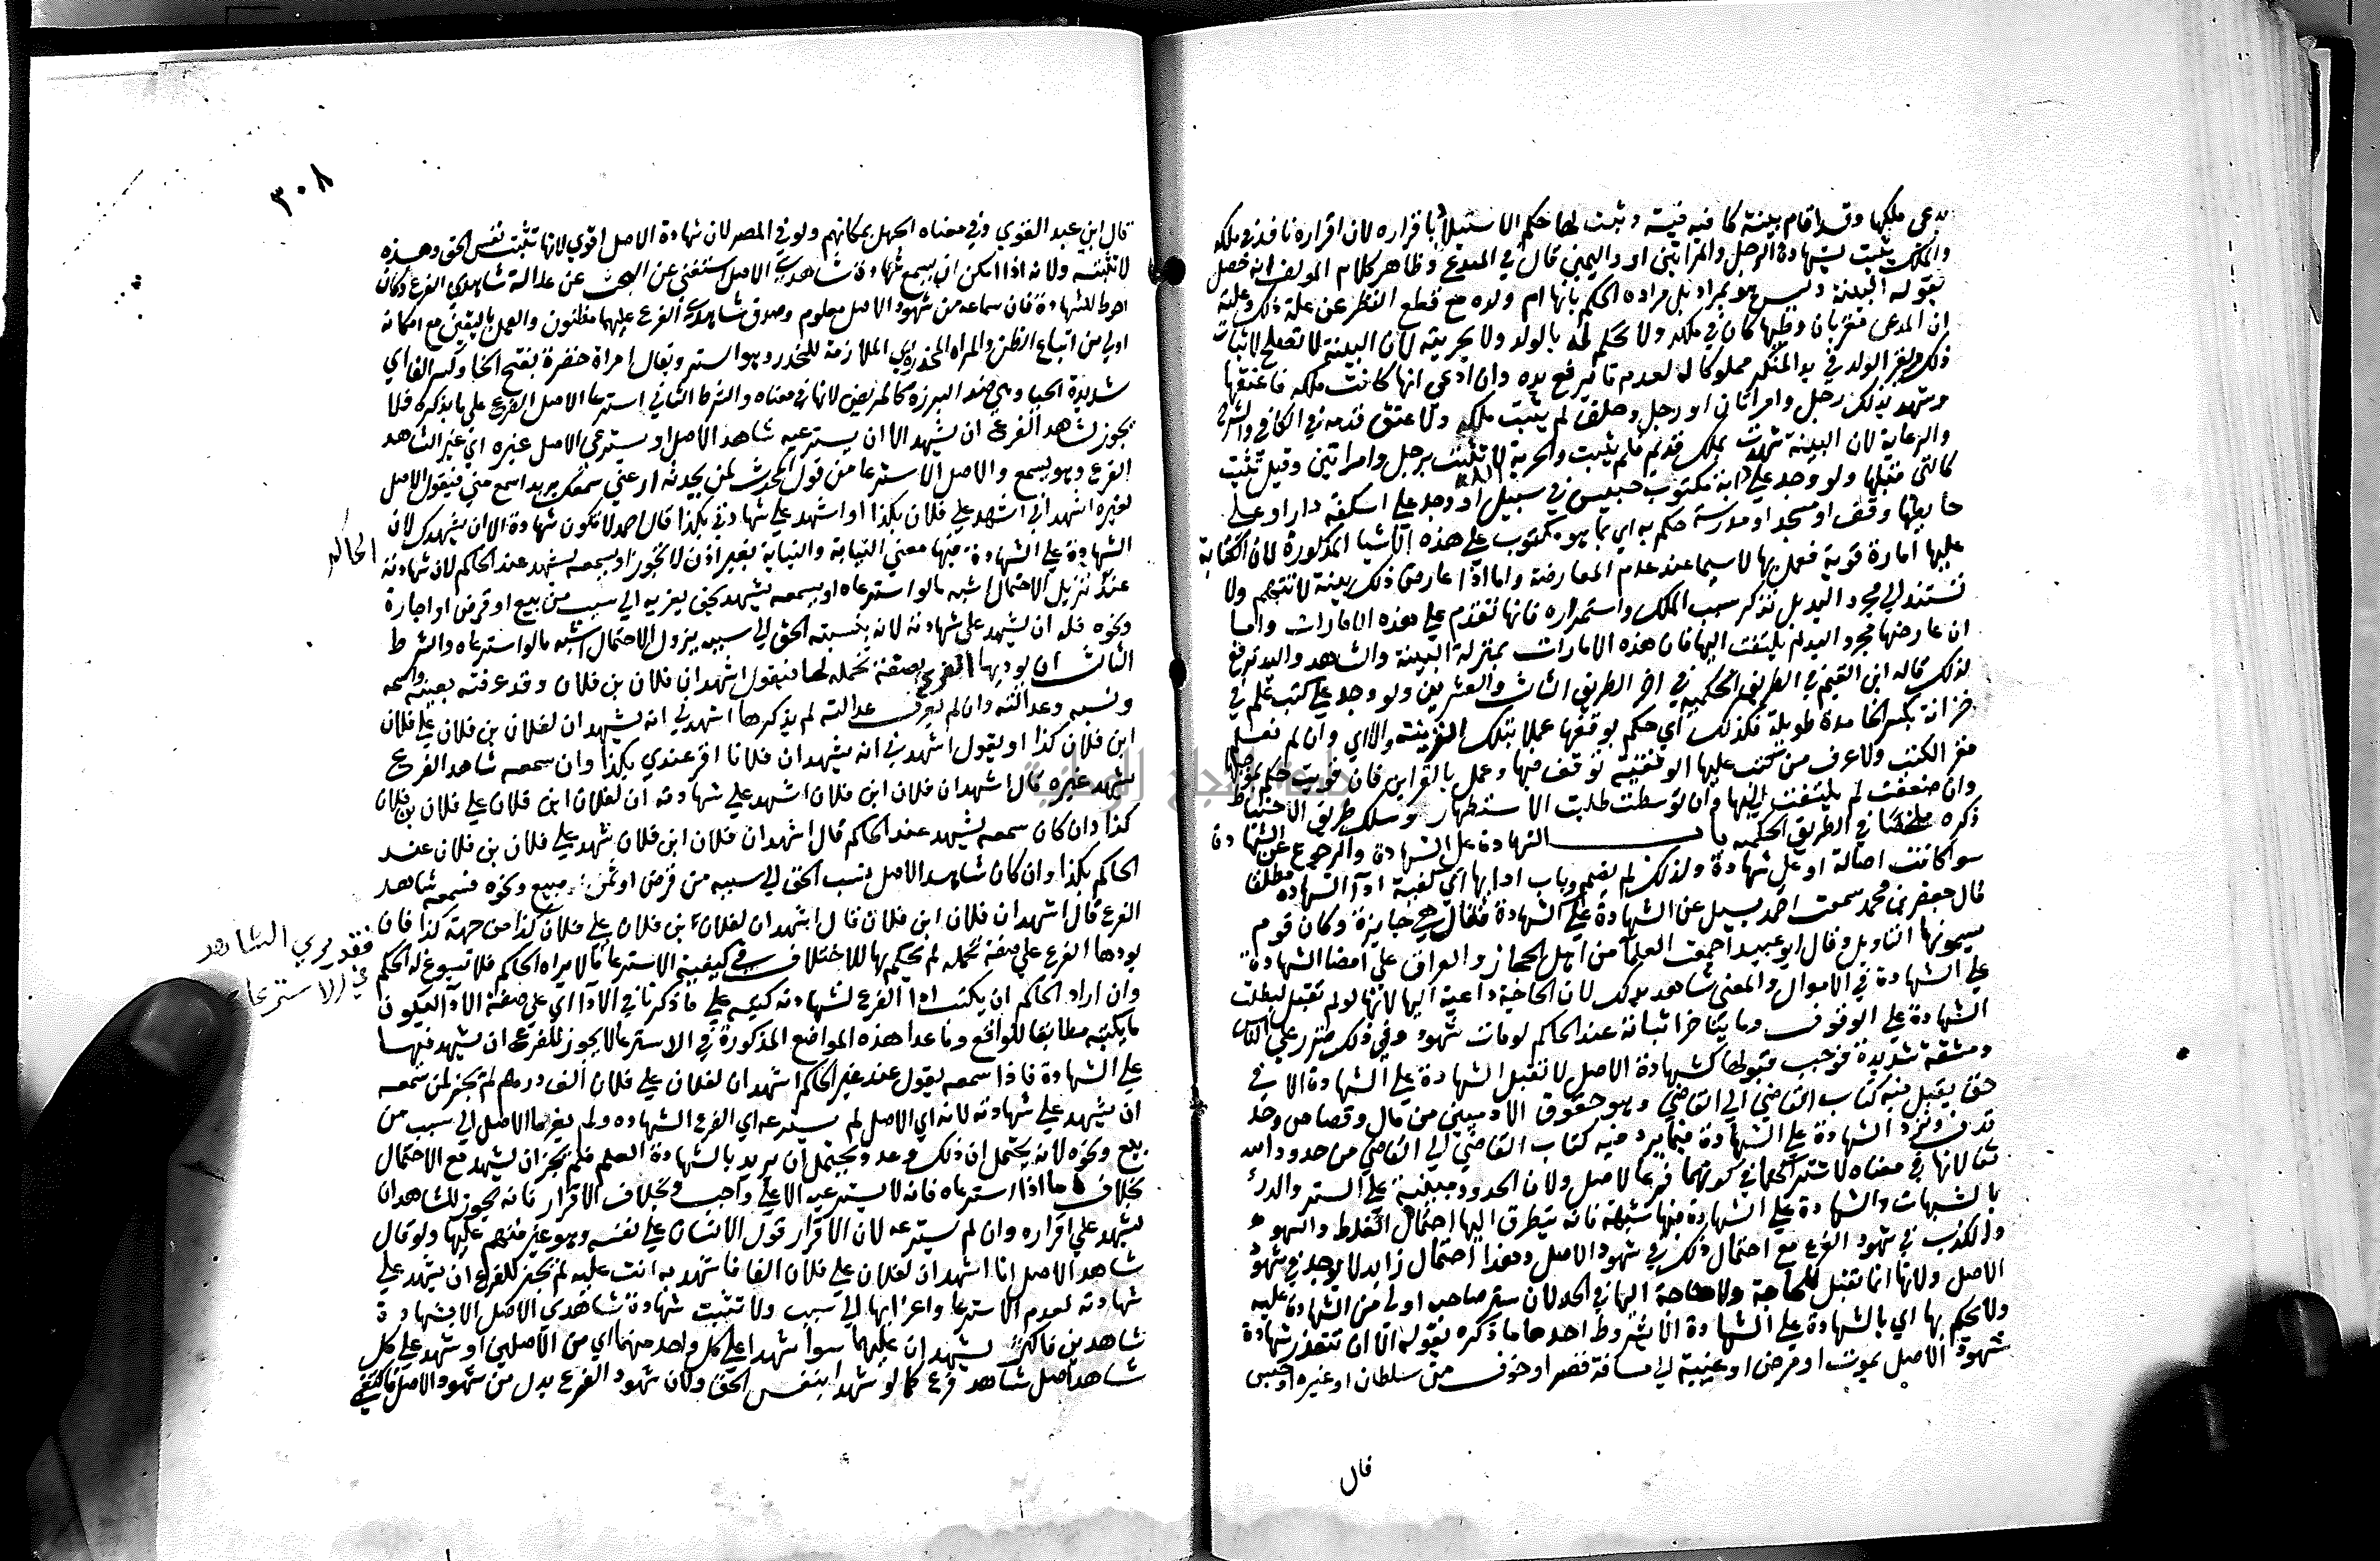 يدعى ملكها وقد اقام بينة كافية فيه وثبت لها حكم الاستيلا باقراره لان اقراره نافذ في ملكه
والملك يثبت بشهادة الرجل والمراتين او واليمين قال في المبدع وظاهر كلام المولف انه حصل
بقوله البينة وليس هو بمراد بل مراده الحكم بانها ام ولده مع قطع النظر عن علة ذلك وعلته
ان المدعى مقر بان وطيها كان في ملكه ولا يحكم له بالولد ولا بحريته لان البينة لا تصلح لاثبات
ذلك ويقر الولد في يد المنكر مملوكا له لعدم ما يرفع يده وان ادعي انها كانت ملكه فاعتقها
وشهد بذلك رجل وامراتان او رجل وحلف لم يثبت ملكه ولا عتق قدمه في الكافي والشرح
والرعاية لان البينة شهدت بملك قديم فلم يثبت والحرية لا تثبت برجل وامراتين وقيل تثبت
كالتى قبلها ولو وجد على دابة مكتوب حبيس في سبيل الله او وجد على اسكفة دار او على
حايطها وقف او مسجد او مدرسة حكم به اي بما هو مكتوب على هذه الاشيا المذكورة لان الكتابة
عليها امارة قوية فعمل بها لا سيما عند عدم المعارضة واما اذا عارض ذلك بينة لا تتهم ولا
تستند الي مجرد اليد بل تذكر سبب الملك واستمراره فانها تقدم على هذه الامارات واما
ان عارضها مجرد اليد لم يلتفت اليها فان هذه الامارات بمنزلة البينة والشاهد واليد ترفع
لذلك قاله ابن القيم في الطريق الحكمية في اخر الطريق الثالث والعشرين ولو وجد على كتب علم في
خزانة بكسر الخا مدة طويلة فكذلك اي حكم بوقفها عملا بتلك القرينة والا اي وان لم نعلم
مقر الكتب ولا عرف من كتب عليها الوقفية توقف فيها وعمل بالقراين فان قويت حكم بموجبها
وان ضعفت لم يلتفت اليها وان توسطت طلبت الاستظهار وسلك طريق الاحتياط
ذكره ملخصا في الطريق الحكمية باب الشهادة على الشهادة والرجوع عن الشهادة
سوا كانت اصالة او على شهادة ولذلك لم يقيد وباب ادايها اي كيفية ادا الشهادة مطلقا
قال جعفر بن محمد سمعت احمد يسيل عن الشهادة على الشهادة فقال هي جايزة وكان قوم
يسمونها التاويل وقال ابو عبيد اجمعت العلما من اهل الحجاز والعراق على امضا الشهادة
على الشهادة في الاموال والمعنى شاهد بذلك لان الحاجة داعية اليها لانها لو لم تقبل لبطلت
الشهادة على الوقوف وما يتاخر اثباته عند الحاكم لو مات شهوده وفي ذلك ضرر على الناس
ومشقة شديدة فوجب قبولها كشهادة الاصل لا تقبل الشهادة على الشهادة الا في
حق يقبل فيه كتاب القاضي الي القاضي وهو حقوق الادميين من مال وقصاص وحد
قذف وترد الشهادة على الشهادة فيما يرد فيه كتاب القاضي الي القاضي من حدود الله
تعالى لانها في معناه لاشتراكهما في كونهما فرعا لاصل ولان الحدود مبنية على الستر والدرء
بالشبهات والشهادة على الشهادة فيها شبهة فانه يتطرق اليها احتمال الغلط والسهو
والكذب في شهود الفرع مع احتمال ذلك في شهود الاصل وهذا احتمال زايد لا يوجد في شهود
الاصل ولانها انما تقبل للحاجة ولا حاجة اليها في الحد لان ستر صاحبه اولى من الشهادة عليه
ولا يحكم بها اي بالشهادة على الشهادة الا بشروط احدها ما ذكره بقوله الا ان تتعذر شهادة
شهود الاصل بموت او مرض او غيبة الي مسافة قصر او خوف من سلطان او غيره او حبس
قال
٣٠٨
قال ابن عبد القوي وفي معناه الجهل بمكانهم ولو في المصر لان شهادة الاصل اقوي لانها تثبت نفس الحق وهذه
لا تثبته ولانه اذا امكن ان يسمع شهادة شاهدي الاصل استغنى عن البحث عن عدالة شاهدي الفرع وكان
احوط للشهادة فان سماعه من شهود الاصل معلوم وصدق شاهدي الفرع عليهما مظنون والعمل باليقين مع امكانه
اولى من اتباع الظن والمراة المخدرة اي الملازمة للخدر وهو الستر ويقال امراة خفرة بفتح الخا وكسر الفا اي
شديدة الحيا وهي ضد البرزة كالمريض لانها في معناه والشرط الثاني استرعا الاصل الفرع على ما يذكره فلا
يجوز لشاهد الفرع ان يشهد الا ان يسترعيه شاهد الاصل او يسترعي الاصل غيره اي غير الشاهد
الفرع وهو يسمع والاصل الاسترعا من قول المحدث لمن يحدثه ارعني سمعك يريد اسمع مني فيقول الاصل
لغيره اشهد اني اشهد على فلان بكذا او اشهد على شهادتي بكذا قال احمد لا تكون شهادة الا ان يشهدك لان
الشهادة على الشهادة فيها معنى النيابة والنيابة بغير اذن لا تجوز او يسمعه يشهد عند الحاكم لان شهادته
الحاكم
عند تنزيل الاحتمال اشبه ما لو استرعاه او يسمعه يشهد بحق يعزيه الي سبب من بيع او قرض او اجارة
ونحوه فله ان يشهد على شهادته لانه بنسبته الحق الي سببه يزول الاحتمال اشبه ما لو استرعاه والشرط
الثالث ان يوديها الفرع بصفة تحمله لها فيقول اشهد ان فلان بن فلان وقد عرفته بعينه واسمه
ونسبه وعدالته وان لم يعرف عدالته لم يذكرها اشهدني انه يشهد ان لفلان بن فلان على فلان
ابن فلان كذا او يقول اشهدني انه يشهد ان فلانا اقر عندي بكذا وان سمعه شاهد الفرع
يشهد غيره قال اشهد ان فلان ابن فلان اشهد على شهادته ان لفلان ابن فلان على فلان بن فلان
كذا وان كان سمعه يشهد عند الحاكم قال اشهد ان فلان ابن فلان شهد على فلان بن فلان عند
الحاكم بكذا وان كان شاهد الاصل نسب الحق الي سببه من قرض او ثمن مبيع ونحوه فسمعه شاهد
الفرع قال اشهد ان فلان ابن فلان قال اشهد ان لفلان بن فلان على فلان كذا من جهة كذا فان
يودها الفرع على صفة تحمله لم يحكم بها للاختلاف في كيفية الاسترعا ما لا يراه الحاكم فلا تسوغ له الحكم
فقد يري الشاهد
في الاسترعا
وان اراد الحاكم ان يكتب ادا الفرع لشهادته كتبه على ما ذكرنا في الادا اي على صفة الادا ليكون
ما يكتبه مطابقا للواقع وما عدا هذه المواضع المذكورة في الاسترعا لا يجوز للفرع ان يشهد فيها
على الشهادة فاذا سمعه يقول عند غير الحاكم اشهد ان لفلان على فلان الف درهم لم يجز لمن سمعه
ان يشهد على شهادته لانه اي الاصل لم يسترعه اي الفرع الشهادة ولم يعزها الاصل الي سبب من
بيع ونحوه لانه يحتمل ان ذلك وعد ويحتمل ان يريد بالشهادة العلم فلم يجز ان يشهد مع الاحتمال
بخلاف ما اذا استرعاه فانه لا يسترعيه الا على واجب وبخلاف الاقرار فانه يجوز للشاهد ان
يشهد على اقراره وان لم يسترعه لان الاقرار قول الانسان على نفسه وهو غير متهم عليها ولو قال
شاهد الاصل انا اشهد ان لفلان على فلان الفا فاشهد به انت عليه لم يجز للفرع ان يشهد على
شهادته لعدم الاسترعا وعزايها الي سبب ولا تثبت شهادة شاهدي الاصل الا بشهادة
شاهدين فاكثر يشهدان عليهما سوا شهدا على كل واحد منهما اي من الاصلين او شهد على كل
شاهد اصل شاهد فرع كما لو شهدا بنفس الحق ولان شهود الفرع بدل من شهود الاصل فاكتفي